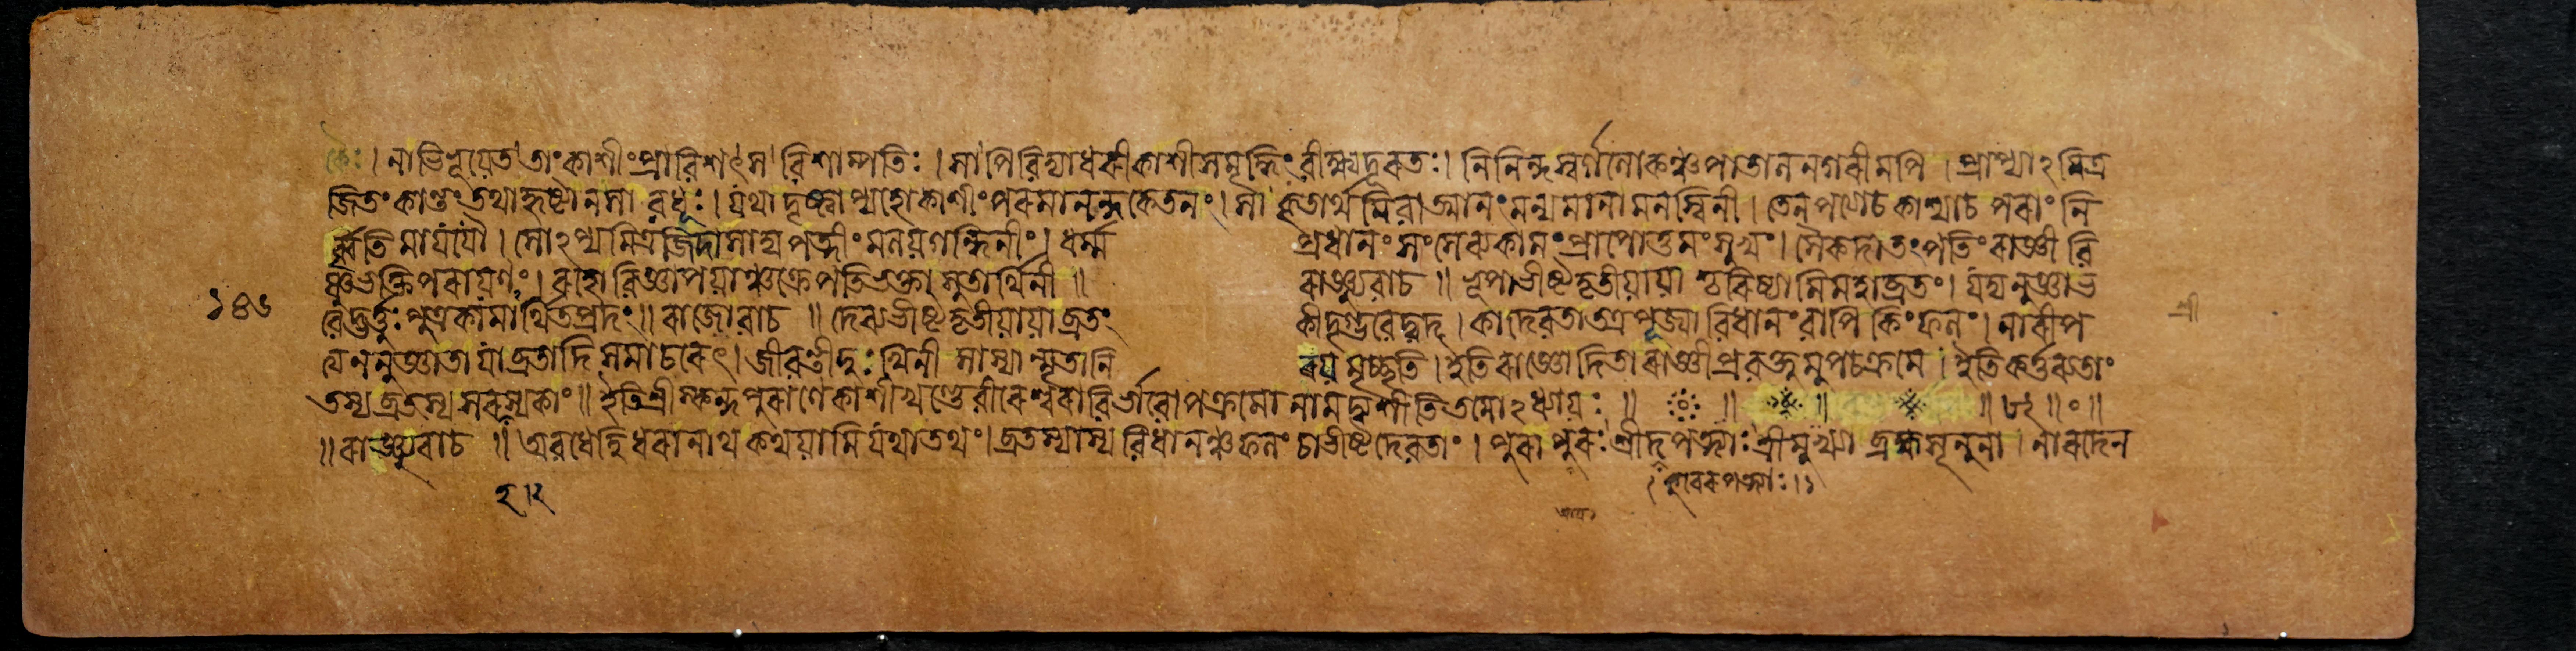 কৈঃ । নাভিলষ্যেত তাং কাশীং প্রাবিশৎ স বিশাম্পতিঃ । সাপি বিদ্যাধৰী কাশীসমৃদ্ধিং বীক্ষ্য দূৰতঃ । নিনিন্দ স্বর্গলোকঞ্চ পাতালনগৰীমপি । প্রাপ্যাঽমিত্র
জিতং কান্তং তথা হৃষ্টা ন সা বধূঃ । যথা দৃষ্ট্বাপ্যহো কাশীং পৰমানন্দকেতনং । সা কৃতার্থমিবাত্মানং মন্যমানা মনস্বিনী । তেন পত্যা চ কাশ্যা চ পৰাং নি
র্বৃতিমাযযৌ । সোঽপ্যমিত্রজিদাসাদ্য পত্নীং মলয়গন্ধিনীং । ধর্ম্ম প্রধানং সংসেব্য কামং প্রাপোত্তমং সুখং । সৈকদা তং পতিং ৰাজ্ঞী বি
ষ্ণুভক্তিপৰায়ণং । ৰহো বিজ্ঞাপয়াঞ্চক্রে পতিভক্তা সুতার্থিনী ॥ ৰাজ্ঞ্যুবাচ ॥ ভূপাভীষ্টতৃতীয়ায়াশ্চৰিষ্যামি মহাব্রতং । যদ্যনুজ্ঞা ভ
বেদ্ভর্ত্তুঃ পুত্রকামার্থিতপ্রদং ॥ ৰাজোবাচ ॥ দেব্যভীষ্টতৃতীয়ায়া ব্রতং কীদৃগ্ভবেদ্বদ । কা দেবতা তত্র পূজ্যা বিধানং বাপি কিং ফলং । নাৰী প
ত্যননুজ্ঞাতা যা ব্রতাদি সমাচৰেৎ । জীবন্তী দুঃখিনী সা স্যান্মৃতা নি ৰয়মৃচ্ছতি । ইতি ৰাজ্ঞোদিতা ৰাজ্ঞী প্রবক্তুমুপচক্রমে । ইতিকর্ত্তব্যতাং
তস্য ব্রতস্য সৰহস্যকাং ॥ ইতি শ্রীস্কন্দপুৰাণে কাশীখণ্ডে বীৰেশ্বৰাবির্ভাবোপক্রমো নাম দ্ব্যশীতিতমোঽধ্যায়ঃ ॥ ॥ ॥ ॥ ৮২ ॥ ০ ॥
॥ ৰাজ্ঞ্যুবাচ ॥ অবধেহি ধৰানাথ কথয়ামি যথাতথং । ব্রতস্যাস্য বিধানঞ্চ ফলং চাভীষ্টদেবতাং । পুৰা পুৰঃ শ্রীদপত্ন্যাঃ শ্রীমুখ্যা ব্রহ্মসূনুনা । নাৰদেন
১৪৬
শ্রী
২।২
কুবেৰপত্ন্যাঃ ।১